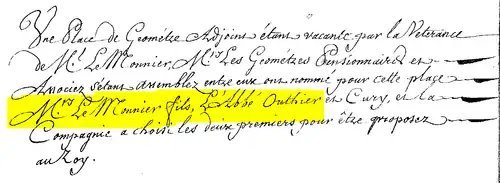 Une Place de Geométre Adjoint étant vacante par la Veterance
de M.r Le Monnier, M.rs Les Geométres Pensionnaires et
Associez s'étant assemblez entre eux ont nommé pour cette place
M.rs Le Monnier fils, L'Abbé Outhier et Cury, et la
Compagnie a choisi les deux premiers pour être proposez
au Roy.